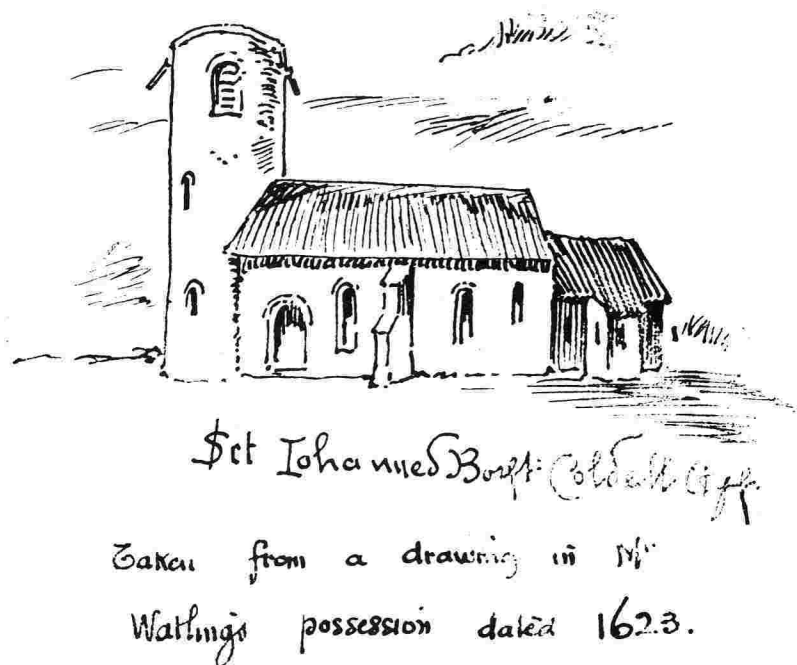 Sct Iohannes Bapt:
Taken from a drawing in Mr
Watlings possession dated 1623.